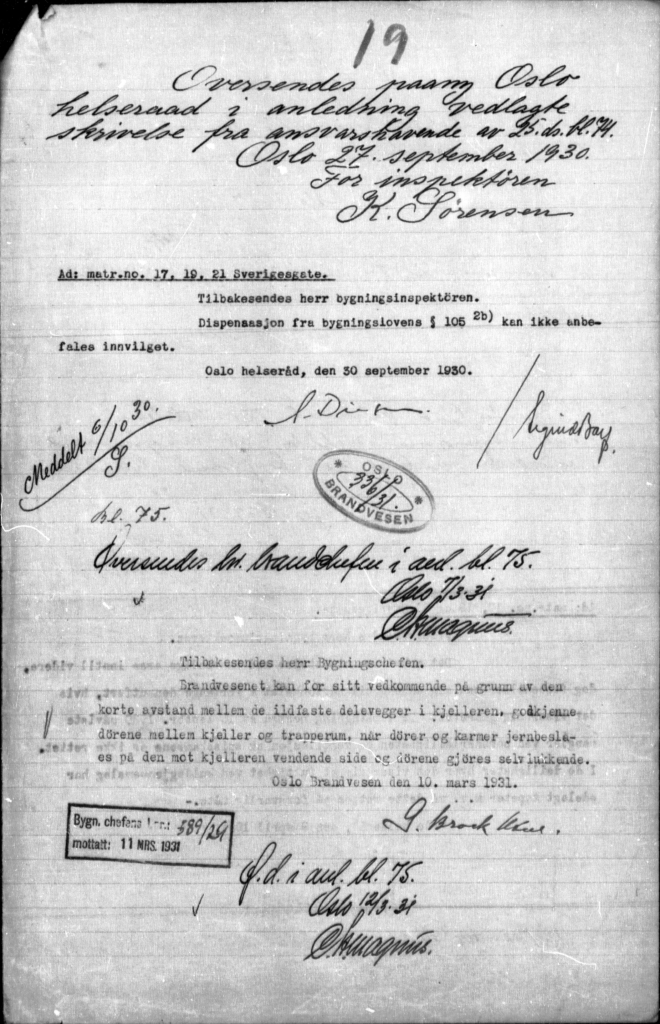 19
Oversendes paany Oslo
helseraad i anledning vedlagte
skrivelse fra ansvarshavende av 25. ds. bl. 74.
Oslo 27. september 1930.
For inspektören
K. Sørensen
Ad: matr.no. 17, 19, 21 Sverigesgate.
Tilbakesendes herr bygningsinspektören.
Dispensasjon fra bygningslovens § 105 2b) kan ikke anbe-
fales innvilget.
Oslo helseråd, den 30 september 1930.
Meddelt 6/10 30.
S.
OSLO
336/31.
BRANDVESEN
bl. 75.
Oversendes hr. brandchefen i anl. bl. 75.
Oslo 7/3-31
Tilbakesendes herr Bygningschefen.
Brandvesenet kan for sitt vedkommende på grunn av den
korte avstand mellem de ildfaste delevegger i kjelleren, godkjenne
dörene mellem kjeller og trapperum, når dörer og karmer jernbesla-
es på den mot kjelleren vendende side og dörene gjöres selvlukkende.
Oslo Brandvesen den 10. mars 1931.
Bygn. chefens j.nr.: 589/29
mottatt: 11 MRS. 1931
Ø.d. i anl. bl. 75.
Oslo 12/3-31